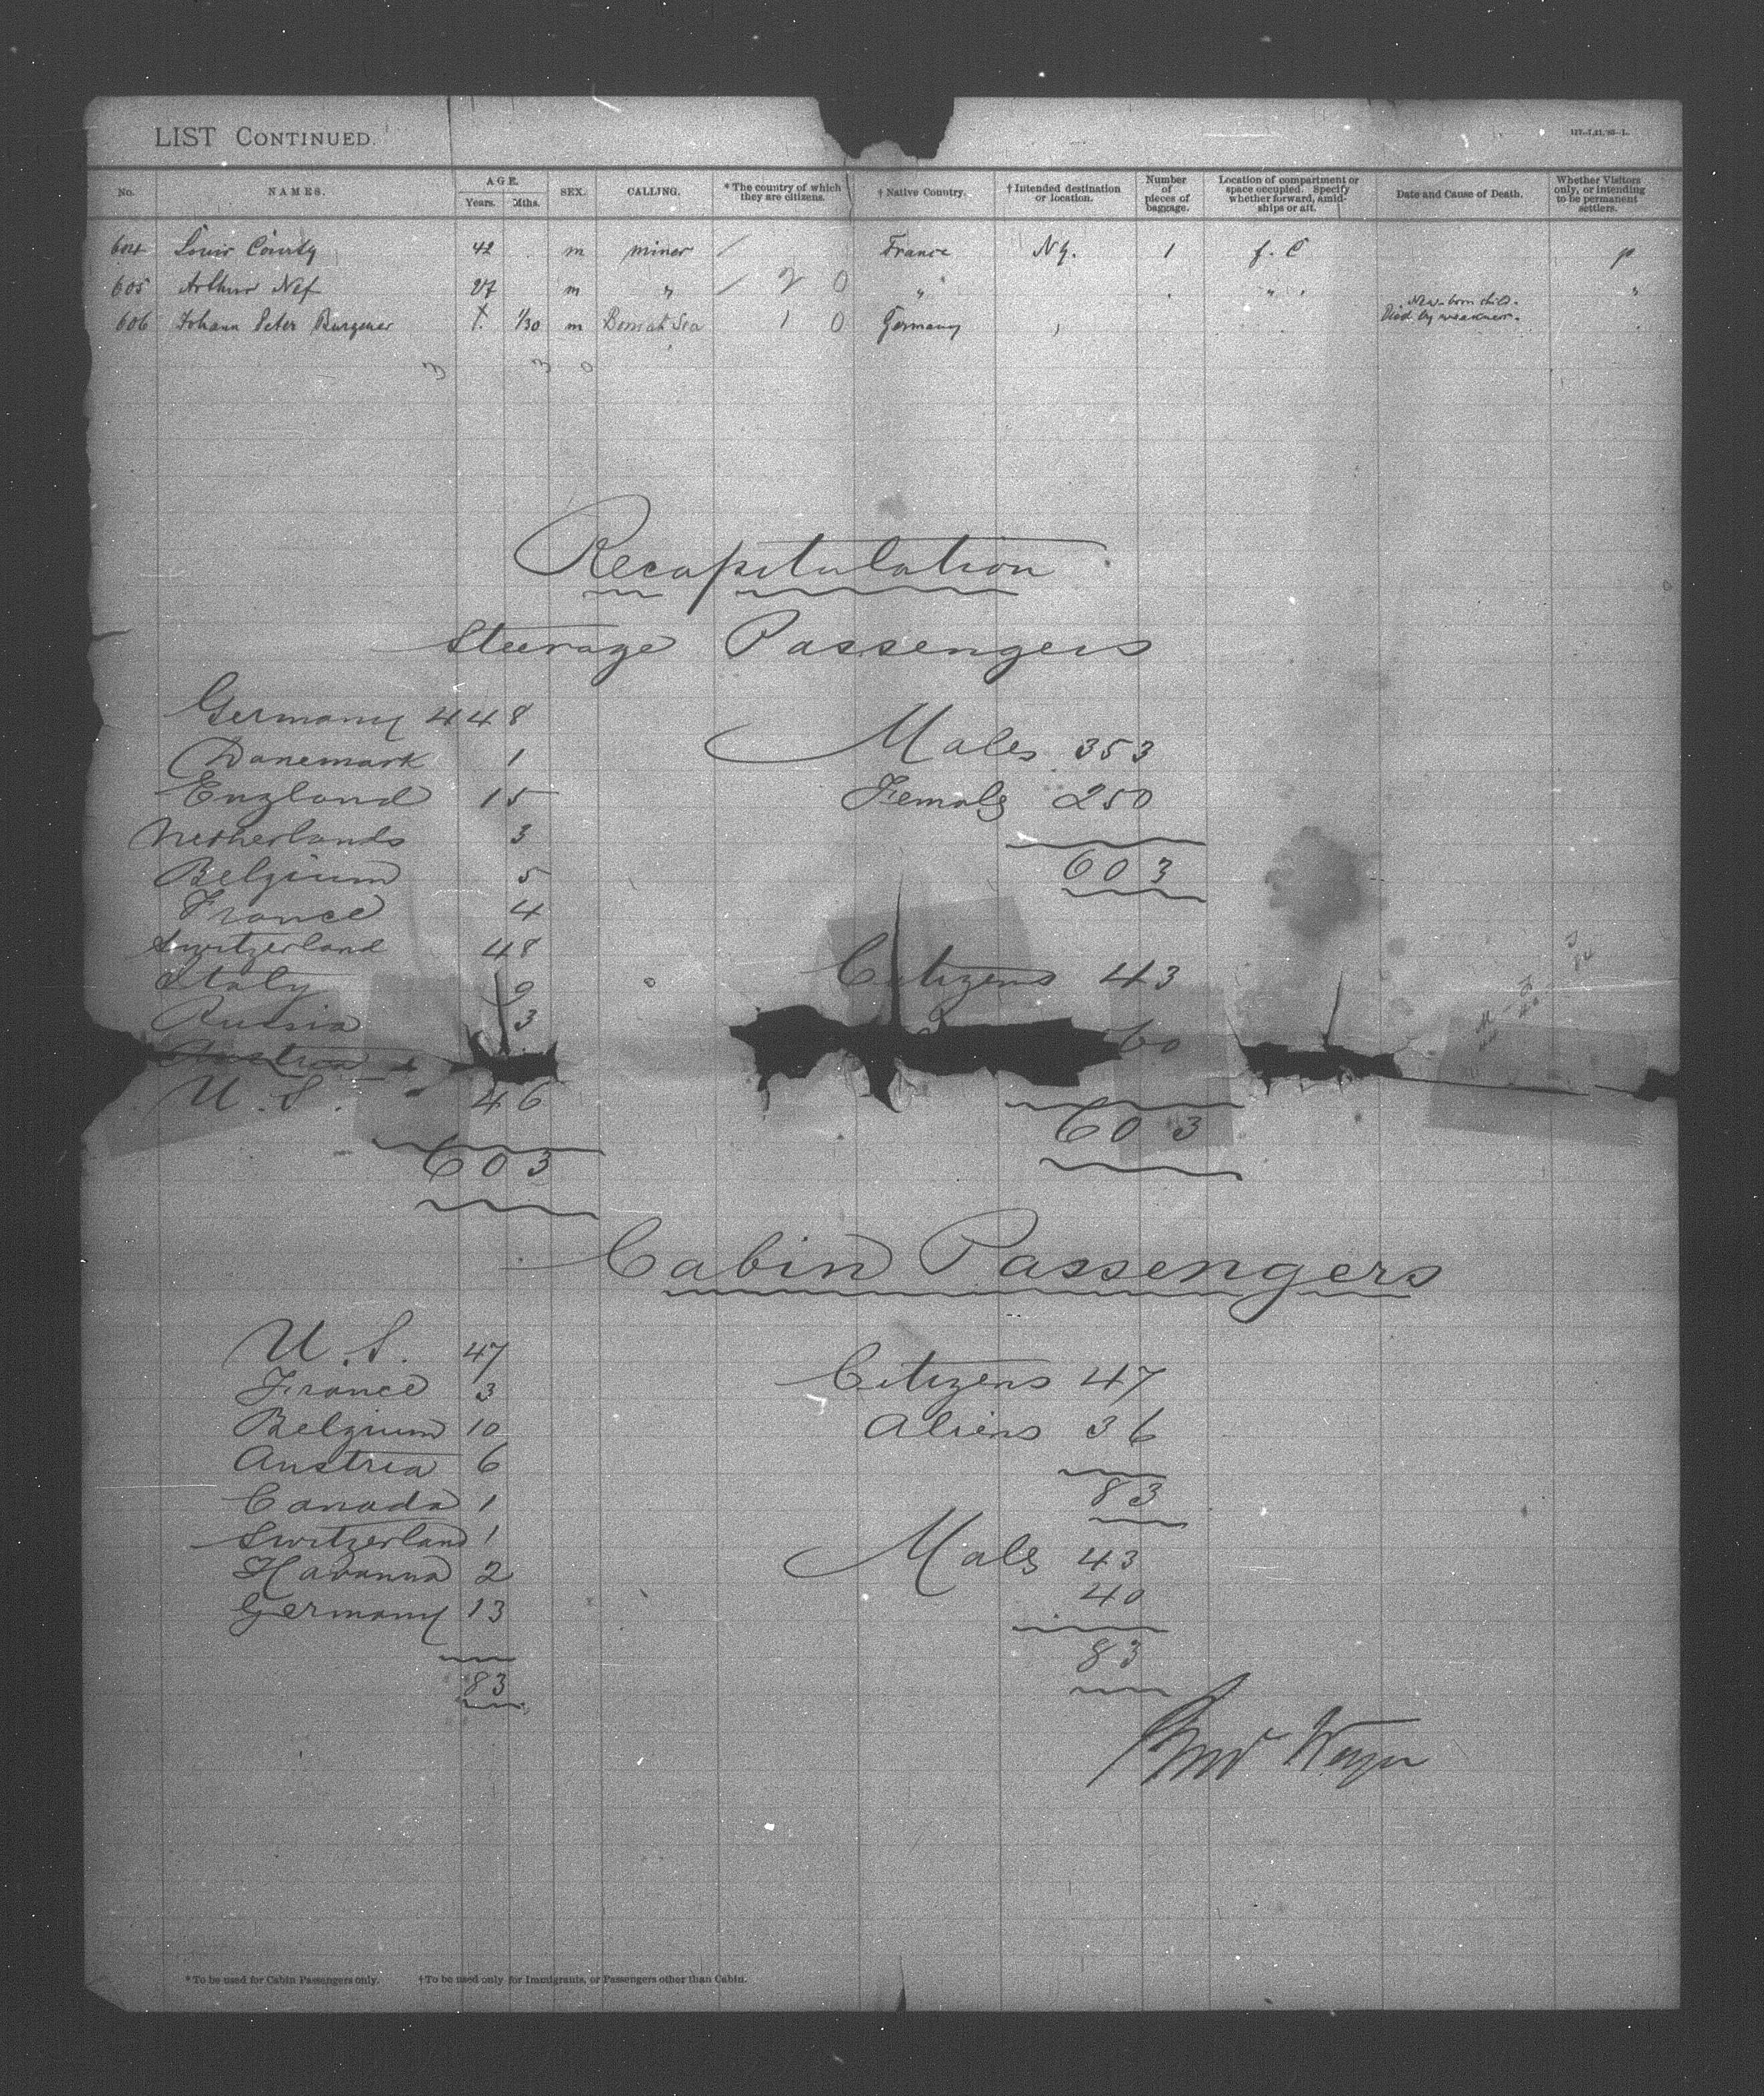 LIST CONTINUED.
No. NAMES. AGE. Years. Mths. SEX. CALLING. * The country of which they are citizens. † Native Country. † Intended destination or location. Number of pieces of baggage. Location of compartment or space occupied. Specify whether forward, amidships or aft. Date and Cause of Death. Whether Visitors only, or intending to be permanent settlers.
604 Louis County 42 m miner / France N.Y. 1 f. C p
605 Arthur Nef 27 m " / 2 0 " " "
New-born child.
606 Johann Peter Burgener 1/30 m Born at Sea 1 0 Germany Died by weakness.
3 3 0
Recapitulation
Steerage Passengers
Germany 448
Males 353
Danemark 1
England 15
Femals 250
Netherlands 3
603
Belgium 5
France 4
Switzerland 48
Citizens 43
Italy
Russia 3
60
U. S. 46
603
603
Cabin Passengers
U. S. 47
Citizens 47
France 3
Belgium 10
Aliens 36
Austria 6
83
Canada 1
Switzerland 1
Males 43
Havanna 2
40
Germany 13
83
83
* To be used for Cabin Passengers only. † To be used only for Immigrants, or Passengers other than Cabin.